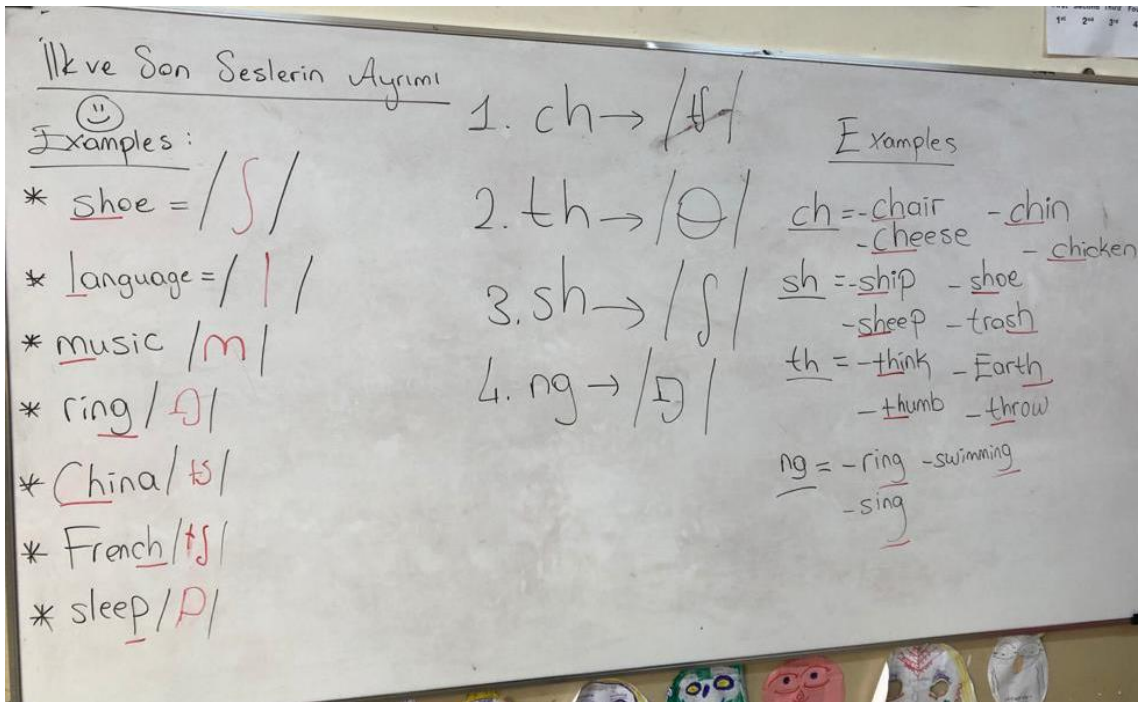 İlk ve Son Seslerin Ayrımı
Examples:
* shoe = /ʃ/
* language = /l/
* music /m/
* ring /ŋ/
* China /tʃ/
* French /tʃ/
* sleep /p/
1. ch → /tʃ/
2. th → /θ/
3. sh → /ʃ/
4. ng → /ŋ/
Examples
ch = - chair - chin
- cheese - chicken
sh = - ship - shoe
- sheep - trash
th = - think - Earth
- thumb - throw
ng = - ring - swimming
- sing
1st 2nd 3rd 4